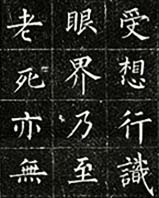 受想行識
眼界乃至
老死亦無